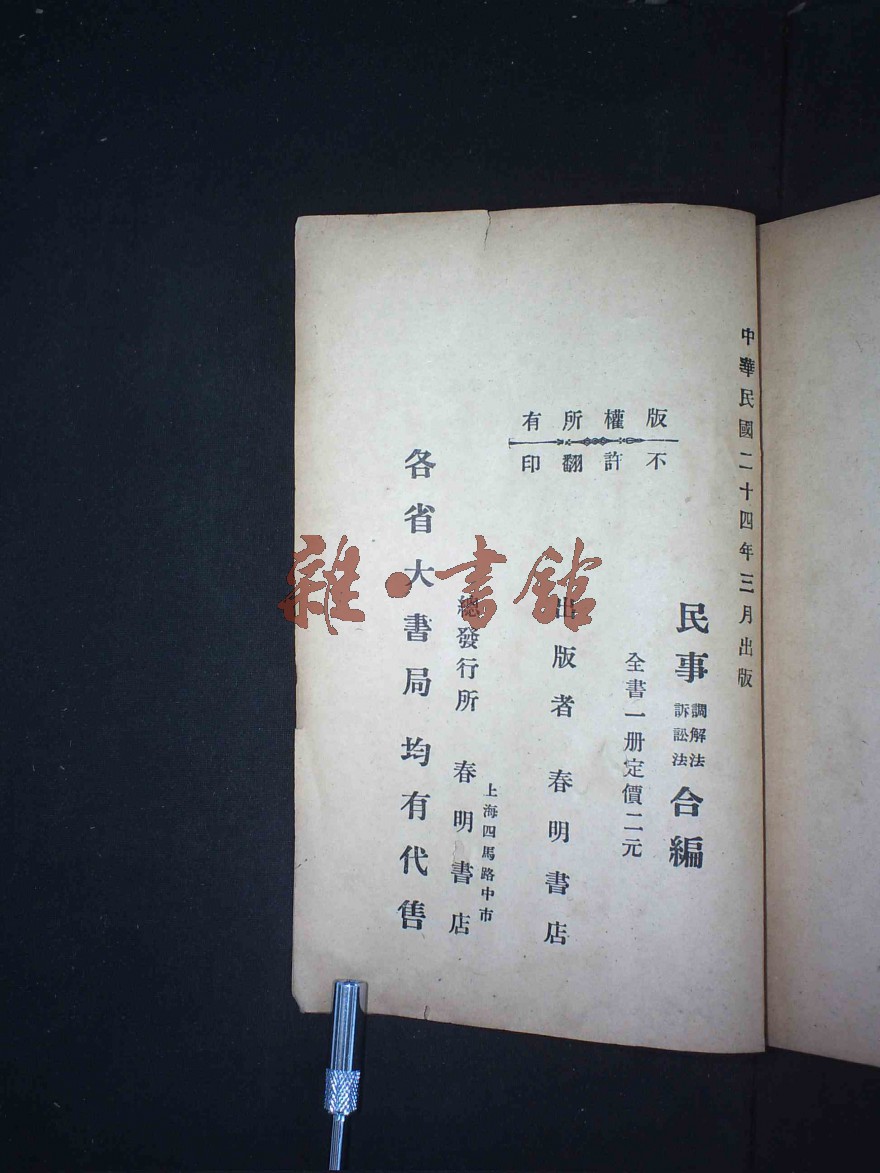 中華民國二十四年三月出版
版權所有
不許翻印
民事調解法訴訟法合編
全書一册定價二元
出版者 春明書店
上海四馬路中市
總發行所 春明書店
各省大書局均有代售
雜·書館